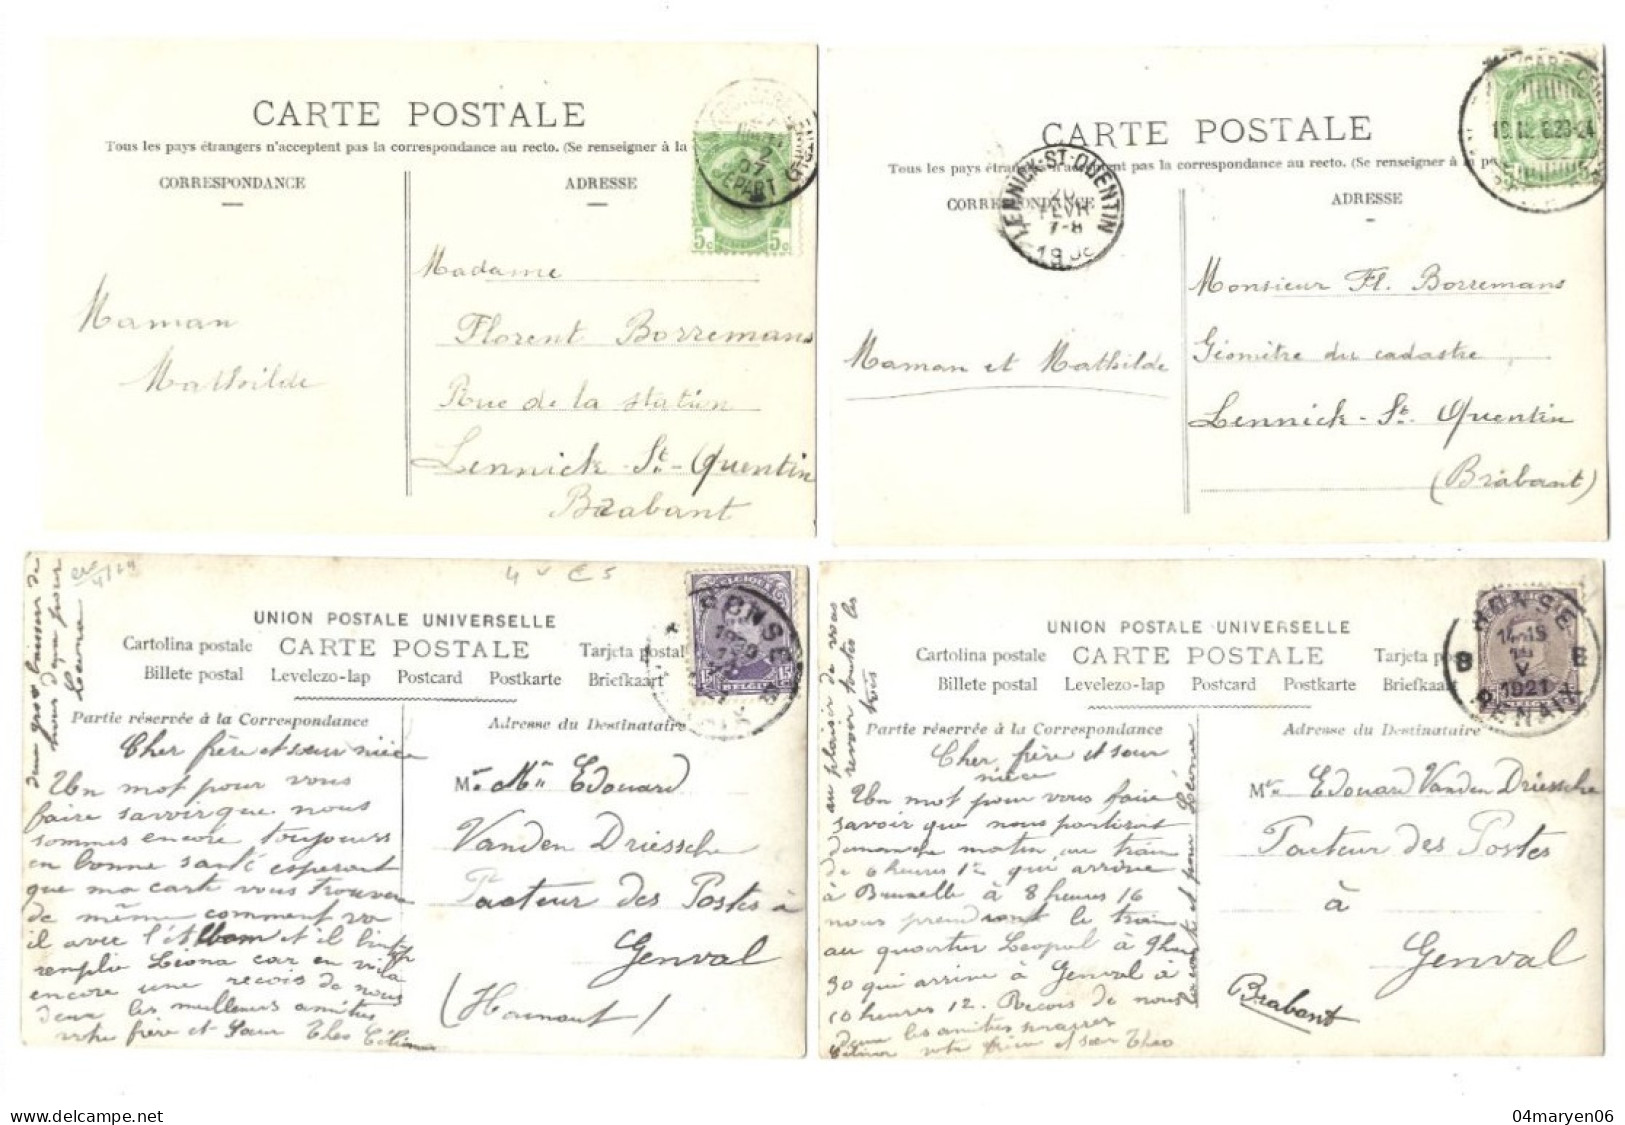 CARTE POSTALE
Tous les pays étrangers n'acceptent pas la correspondance au recto. (Se renseigner à la
CORRESPONDANCE
ADRESSE
DEPART
5c 5c
Maman
Mathilde
Madame
Florent Borremans
Rue de la station
Lennick-St-Quentin
Brabant
CARTE POSTALE
Tous les pays étrangers n'acceptent pas la correspondance au recto. (Se renseigner à la po
CORRESPONDANCE
ADRESSE
LENNICK-ST-QUENTIN
20
FEVR
7-8
Maman et Mathilde
Monsieur Fl. Borremans
Géomètre du cadastre
Lennick-St. Quentin
(Brabant)
UNION POSTALE UNIVERSELLE
Cartolina postale CARTE POSTALE Tarjeta postal
Billete postal Levelezo-lap Postcard Postkarte Briefkaart
Partie réservée à la Correspondance
Adresse du Destinataire
deux gros baisers de
nous deux pour
Léona
Cher frère et sœur nièce
Un mot pour vous
faire savoir que nous
sommes encore toujours
en bonne santé esperant
que ma carte vous trouver
de même comment va
il avec l'Album et il
remplie Léona car en
encore une recois de nous
deux les meilleurs amitiés
votre frère et Sœur Theo
Mr. Mm Edouard
Vanden Driessche
Facteur des Postes à
Genval
(Hainaut)
UNION POSTALE UNIVERSELLE
Cartolina postale CARTE POSTALE Tarjeta pos
Billete postal Levelezo-lap Postcard Postkarte Briefkaart
Partie réservée à la Correspondance
Adresse du Destinataire
RONSE
B B
V
1921
RENAIX
au plaisir de vous
revoir toutes les
trois
Cher frère et sœur
nièce
Un mot pour vous faire
savoir que nous partirons
dimanche matin au train
de 6 heures 12 qui arrive
à Bruxelle à 8 heures 16
nous prendront le train
au quartier Leopol à 9 heures
30 qui arrive à Genval à
10 heures 12. Recois de nous
deux les amitiés
votre frère et sœur Théo
Mr. Edouard Vanden Driessche
Facteur des Postes
à
Genval
Brabant
04maryen06